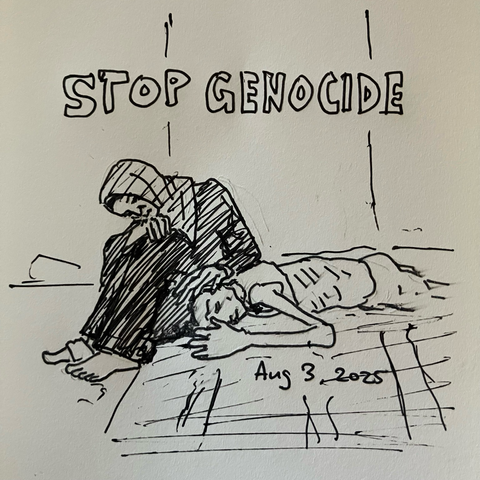 STOP GENOCIDE
Aug 3, 2025